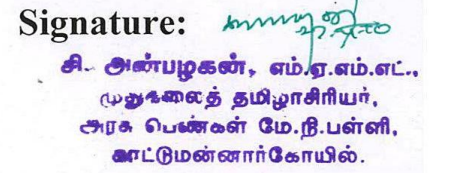 Signature:
சி. அன்பழகன், எம்.ஏ.எம்.எட்.,
முதுகலைத் தமிழாசிரியர்,
அரசு பெண்கள் மே.நி.பள்ளி,
காட்டுமன்னார்கோயில்.